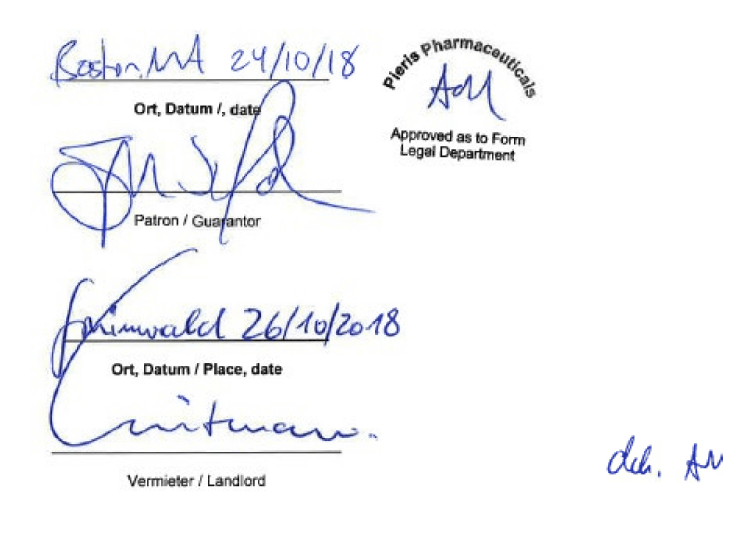 Boston, MA 24/10/18
Ort, Datum /, date
Patron / Guarantor
Pieris Pharmaceuticals
Approved as to Form
Legal Department
Grünwald 26/10/2018
Ort, Datum / Place, date
Vermieter / Landlord